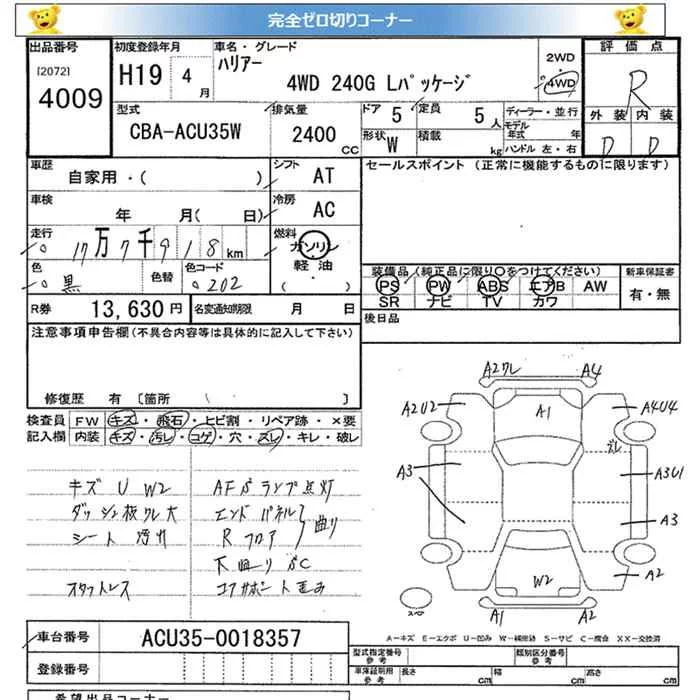 完全ゼロ切りコーナー
出品番号 初度登録年月 車名・グレード 評価点
[2072] 4009 H19 4月 ハリアー 4WD 240G Lパッケージ 2WD 4WD R
型式 CBA-ACU35W 排気量 2400 CC ドア 5 定員 5人 ディーラー・並行 外装 内装
形状 W 積載 kg モデル年式 年 ハンドル 左・右 D D
車歴 自家用・( ) シフト AT セールスポイント (正常に機能するものに限ります)
車検 年 月( 日) 冷房 AC
走行 17万7千918km 燃料 ガソリン 軽油・( )
色 黒 色替 色コード 202
装備品(純正品に限り○をつけてください) 新車保証書
PS PW ABS エアB AW 有・無
SR ナビ TV カワ
R券 13,630円 名変通知期限 月 日 後日品
注意事項申告欄(不具合内容等は具体的に記入して下さい)
修復歴 有 [箇所 ]
検査員記入欄 FW キズ・飛石・ヒビ割・リペア跡・×要
内装 キズ・汚レ・コゲ・穴・スレ・キレ・破レ
キズ U W2 AFパランプ点灯
ダッシュ板ワレ大 エンドパネル
シート 汚れ Rフロア 曲り
下廻りSC
スタットレス コアサポート歪み
A2ワレ A4
A2U2 A1 A4U4
A3 A3U1
A3
W2 A2
スペア A1 A2
A-キズ E-エクボ U-凹み W-補修跡 S-サビ C-腐食 XX-交換済
車台番号 ACU35-0018357
型式指定番号 参考 類別区分番号 参考
登録番号 車庫証明用 参考 長さ cm 幅 cm 高さ cm
希望出品コーナー